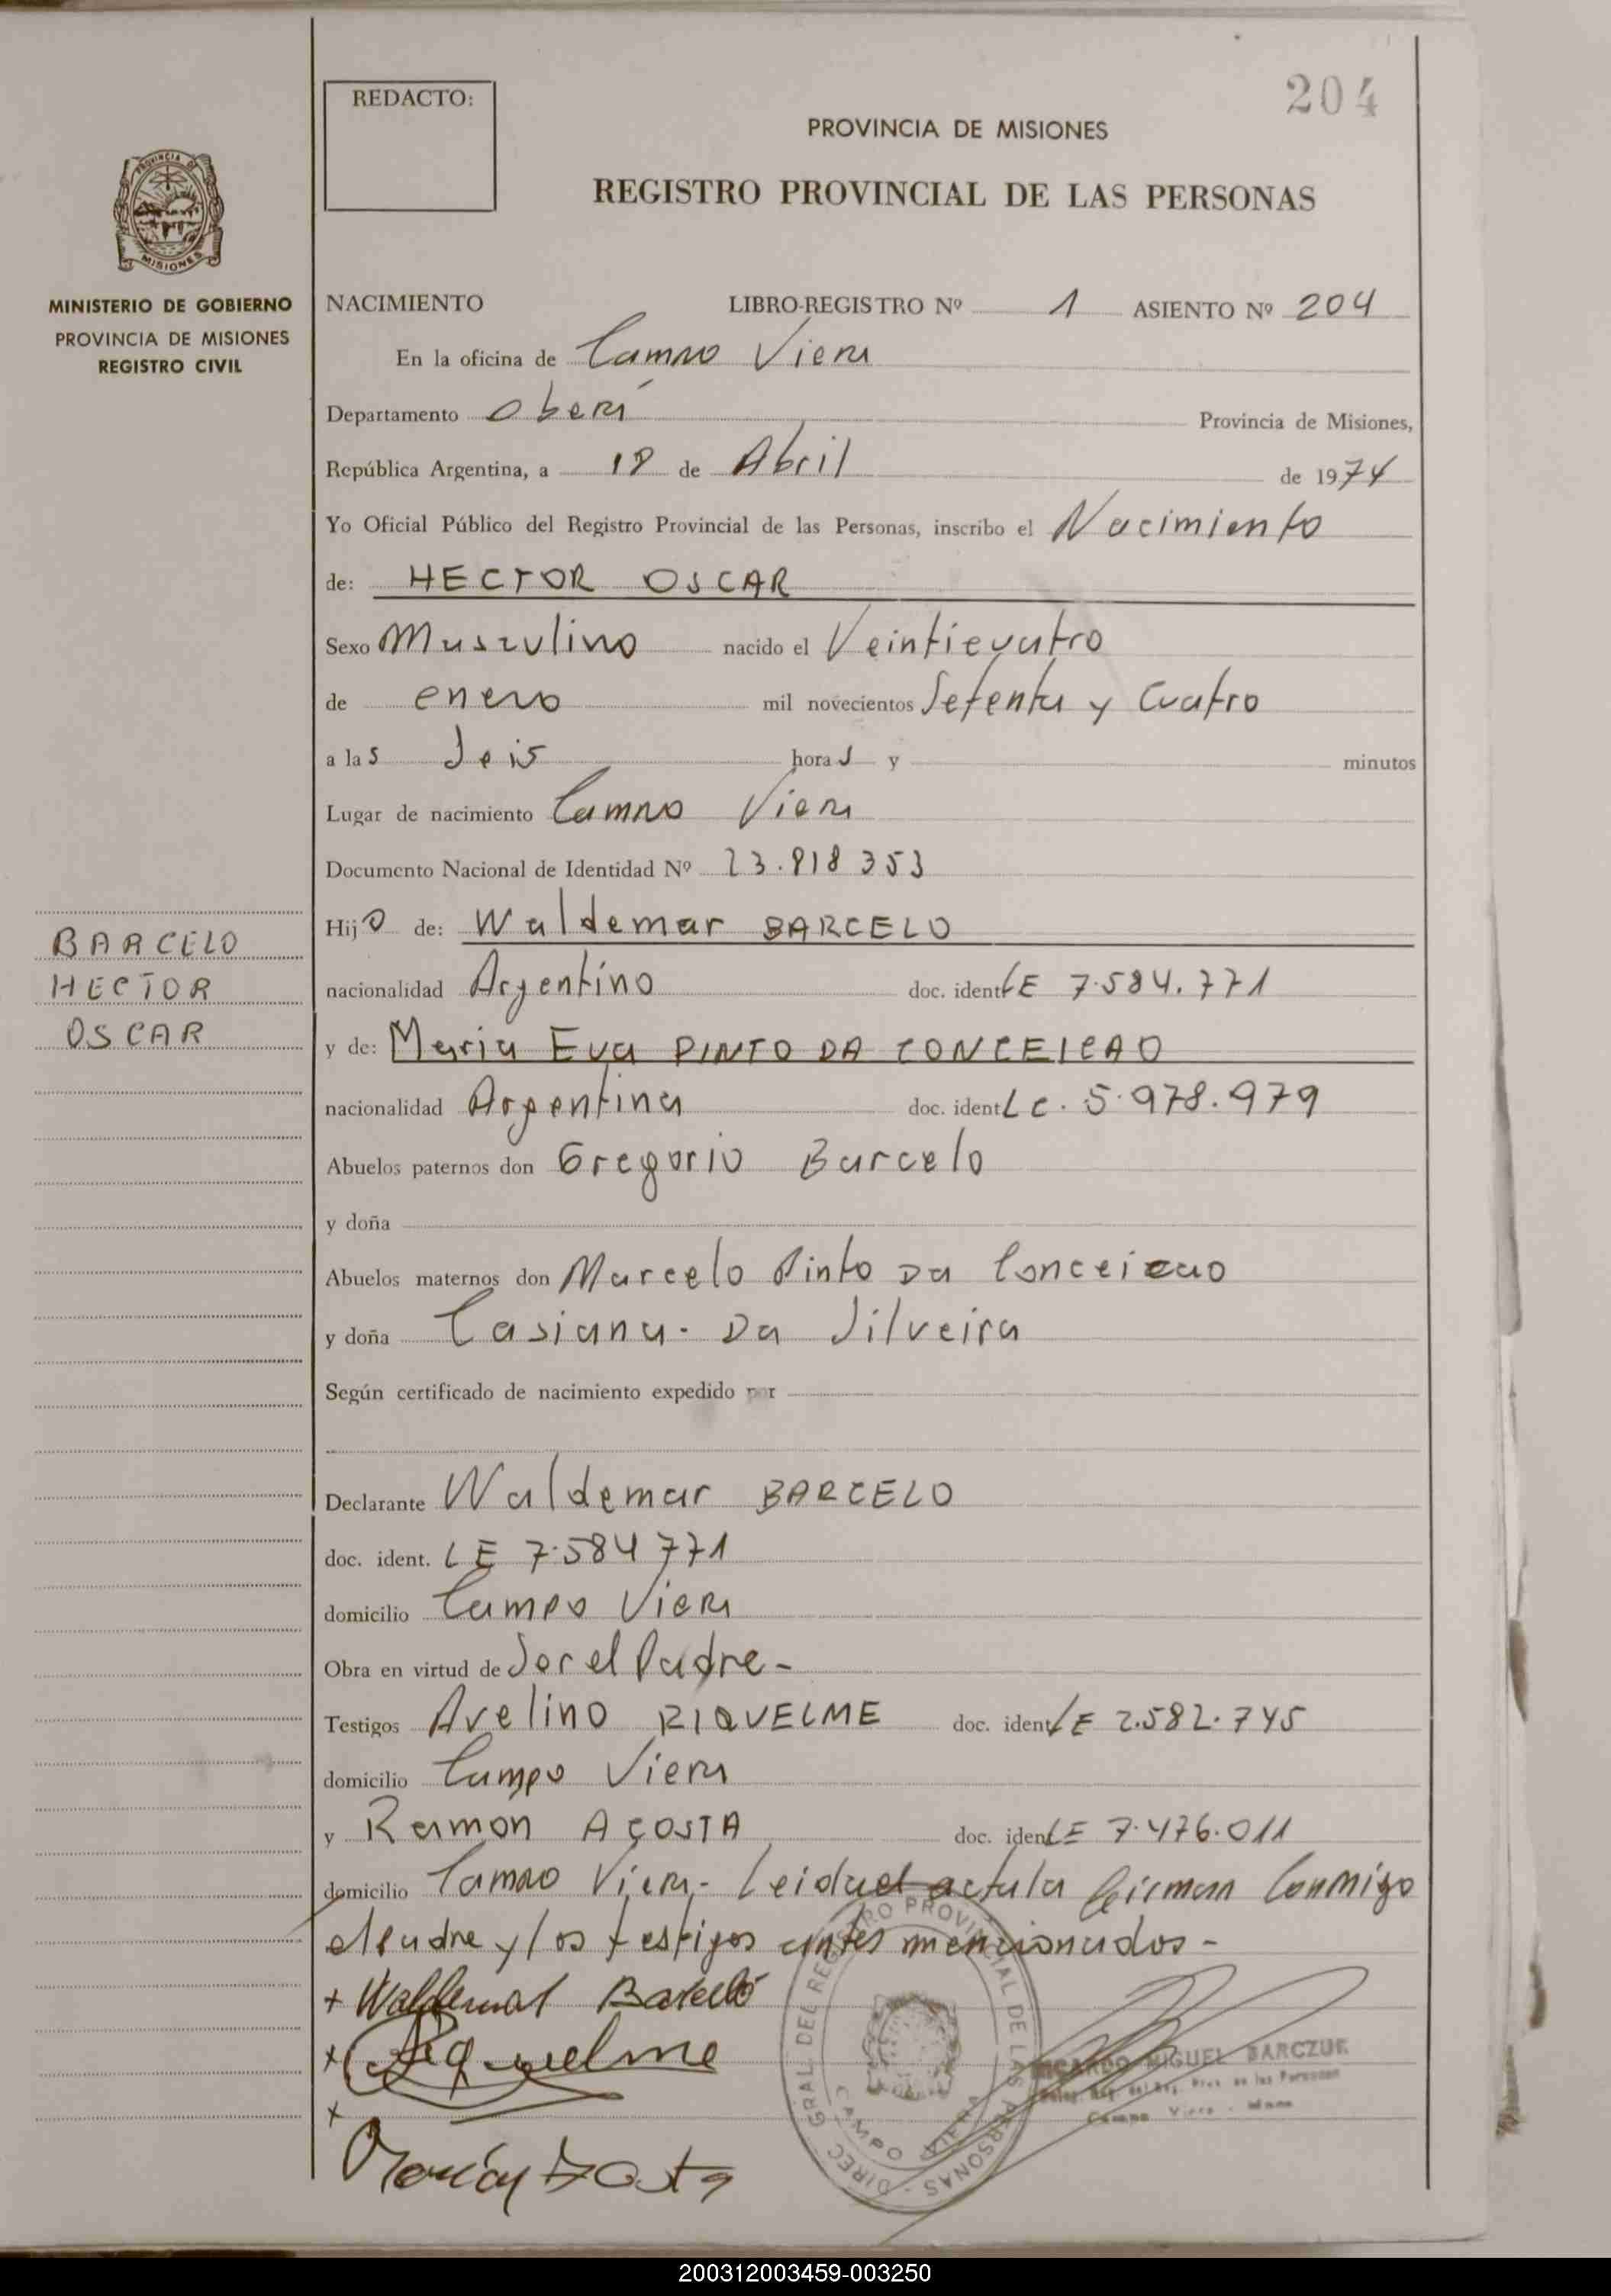 204
REDACTO:
PROVINCIA DE MISIONES
REGISTRO PROVINCIAL DE LAS PERSONAS
PROVINCIA DE
MISIONES
MINISTERIO DE GOBIERNO
PROVINCIA DE MISIONES
REGISTRO CIVIL
NACIMIENTO LIBRO-REGISTRO Nº 1 ASIENTO Nº 204
En la oficina de Campo Viera
Departamento Oberá Provincia de Misiones,
República Argentina, a 18 de Abril de 1974
Yo Oficial Público del Registro Provincial de las Personas, inscribo el Nacimiento
de: HECTOR OSCAR
Sexo Masculino nacido el Veinticuatro
de enero mil novecientos Setenta y Cuatro
a las Seis horas y minutos
Lugar de nacimiento Campo Viera
Documento Nacional de Identidad Nº 23.818 353
Hijo de: Waldemar BARCELO
BARCELO
HECTOR
OSCAR
nacionalidad Argentino doc. ident LE 7.584.771
y de: Maria Eva PINTO DA CONCEICAO
nacionalidad Argentina doc. ident LC. 5.978.979
Abuelos paternos don Gregorio Barcelo
y doña
Abuelos maternos don Marcelo Pinto Da Conceicao
y doña Casiana. Da Silveira
Según certificado de nacimiento expedido por
Declarante Waldemar BARCELO
doc. ident. LE 7.584 771
domicilio Campo Viera
Obra en virtud de Ser el Padre -
Testigos Avelino RIQUELME doc. ident LE 2.582.745
domicilio Campo Viera
y Ramon ACOSTA doc. ident LE 7.476.011
domicilio Campo Viera- Leida el acta la firman Conmigo
el Padre y los testigos antes mencionados -
+ Waldemar Barceló
+ Riquelme
+
Ramón Acosta
DIREC. GRAL DEL REGISTRO PROVINCIAL DE LAS PERSONAS -
CAMPO VIERA
RICARDO MIGUEL BARCZUK
Campo Viera - Mnes
200312003459-003250